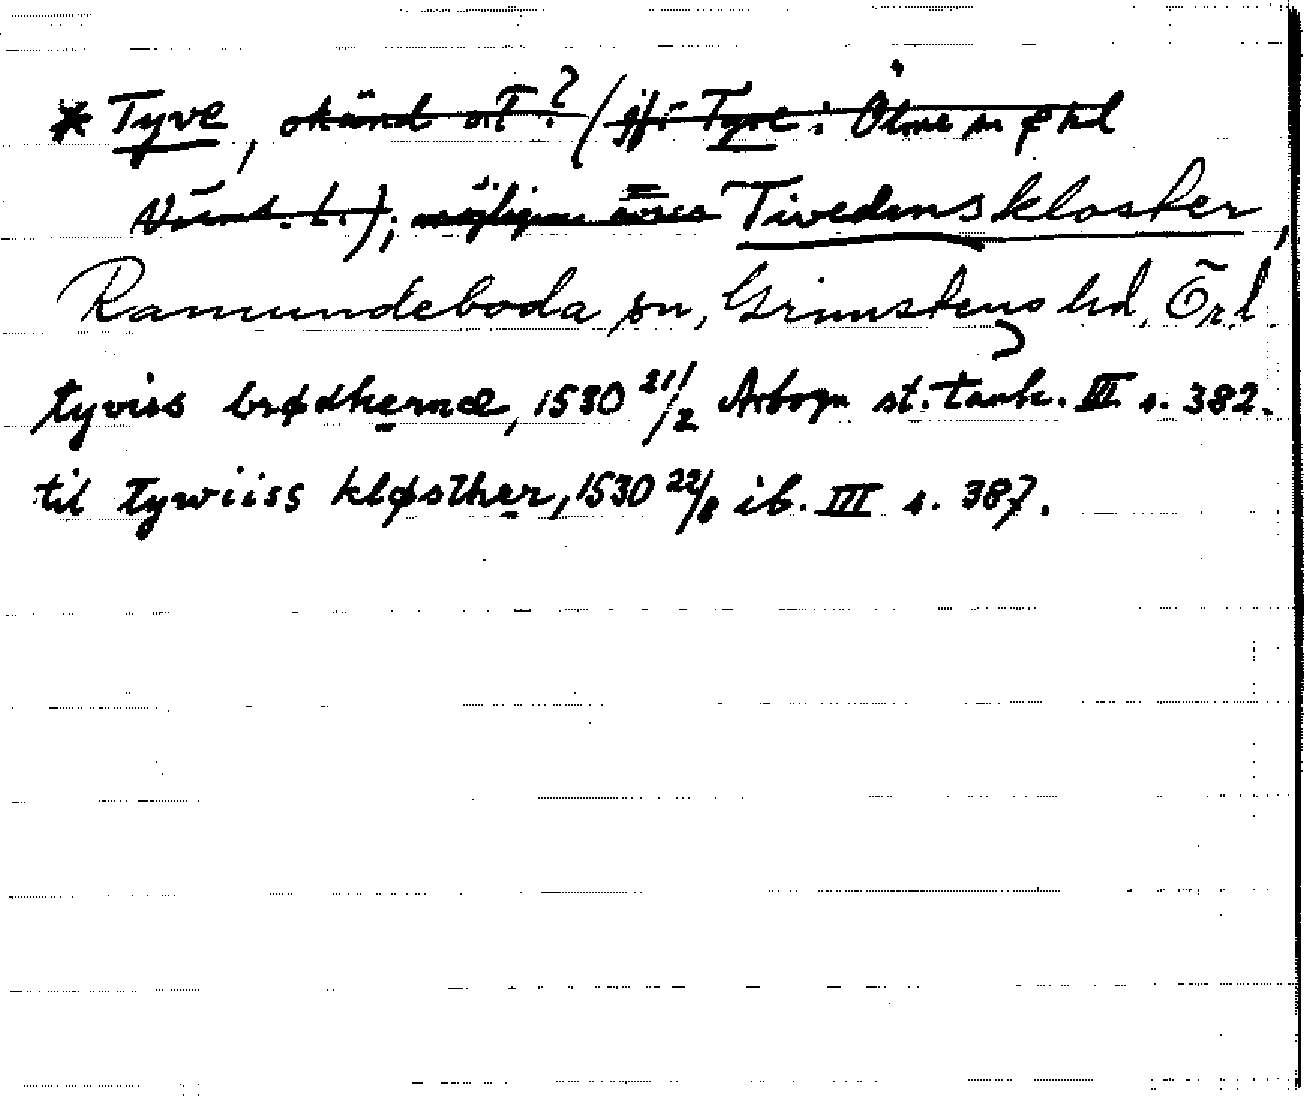 * Tyve, okänd ort? (jfr Tyve i Ölme sn o hd
Värml. l.); möjligen avses Tivedens kloster,
Ramundeboda sn, Grimstens hd, Örl
tyviss brødhernæ, 1530 21/2 Arboga st. tankb. III s. 382.
til tywiiss kløsther, 1530 22/8 ib. III s. 387.